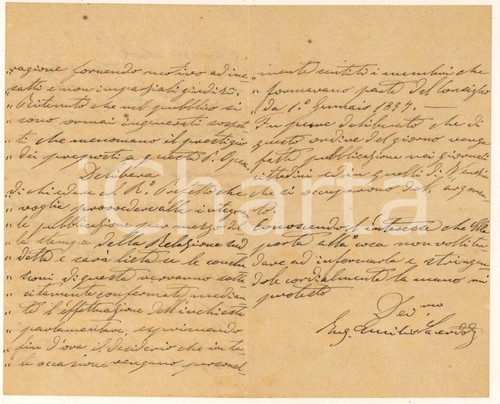 "ragione fornendo motivo ad ine-
"satti e non imparziali giudizi.
"Ritenuto che nel pubblico si
"sono ormai ingenerati sospet-
"ti che menomano il prestigio
"dei preposti a questa P. Opera
Delibera
"di chiedere al R.º Prefetto che
"voglia provvedere alla integra-
"le pubblicazione per mezzo del-
"la stampa della Relazione sud
"detta e sarà lieta se le conclu-
"sioni di questa verranno solle-
"citamente confermate median-
"te l'effettuazione dell'inchiesta
"parlamentare, esprimendo
"fin d'ora il desiderio che in ta-
"le occasione vengano personal-
"mente sentiti i membri che
"formavano parte del Consiglio
"da 1.º Gennaio 1897. —
Fu pure deliberato che di
questo ordine del giorno venga
fatta pubblicazione nei giornali
cittadini ed in quelli di
che si occuparono dell'argomen-
to.
Conoscendo l'interesse che Ella
porta alla cosa non volli tar-
dare ad informarla e stringen-
dole cordialmente la mano mi
protesto
Dev.mo
Ing. Emilio Sacerdoti
iCharta